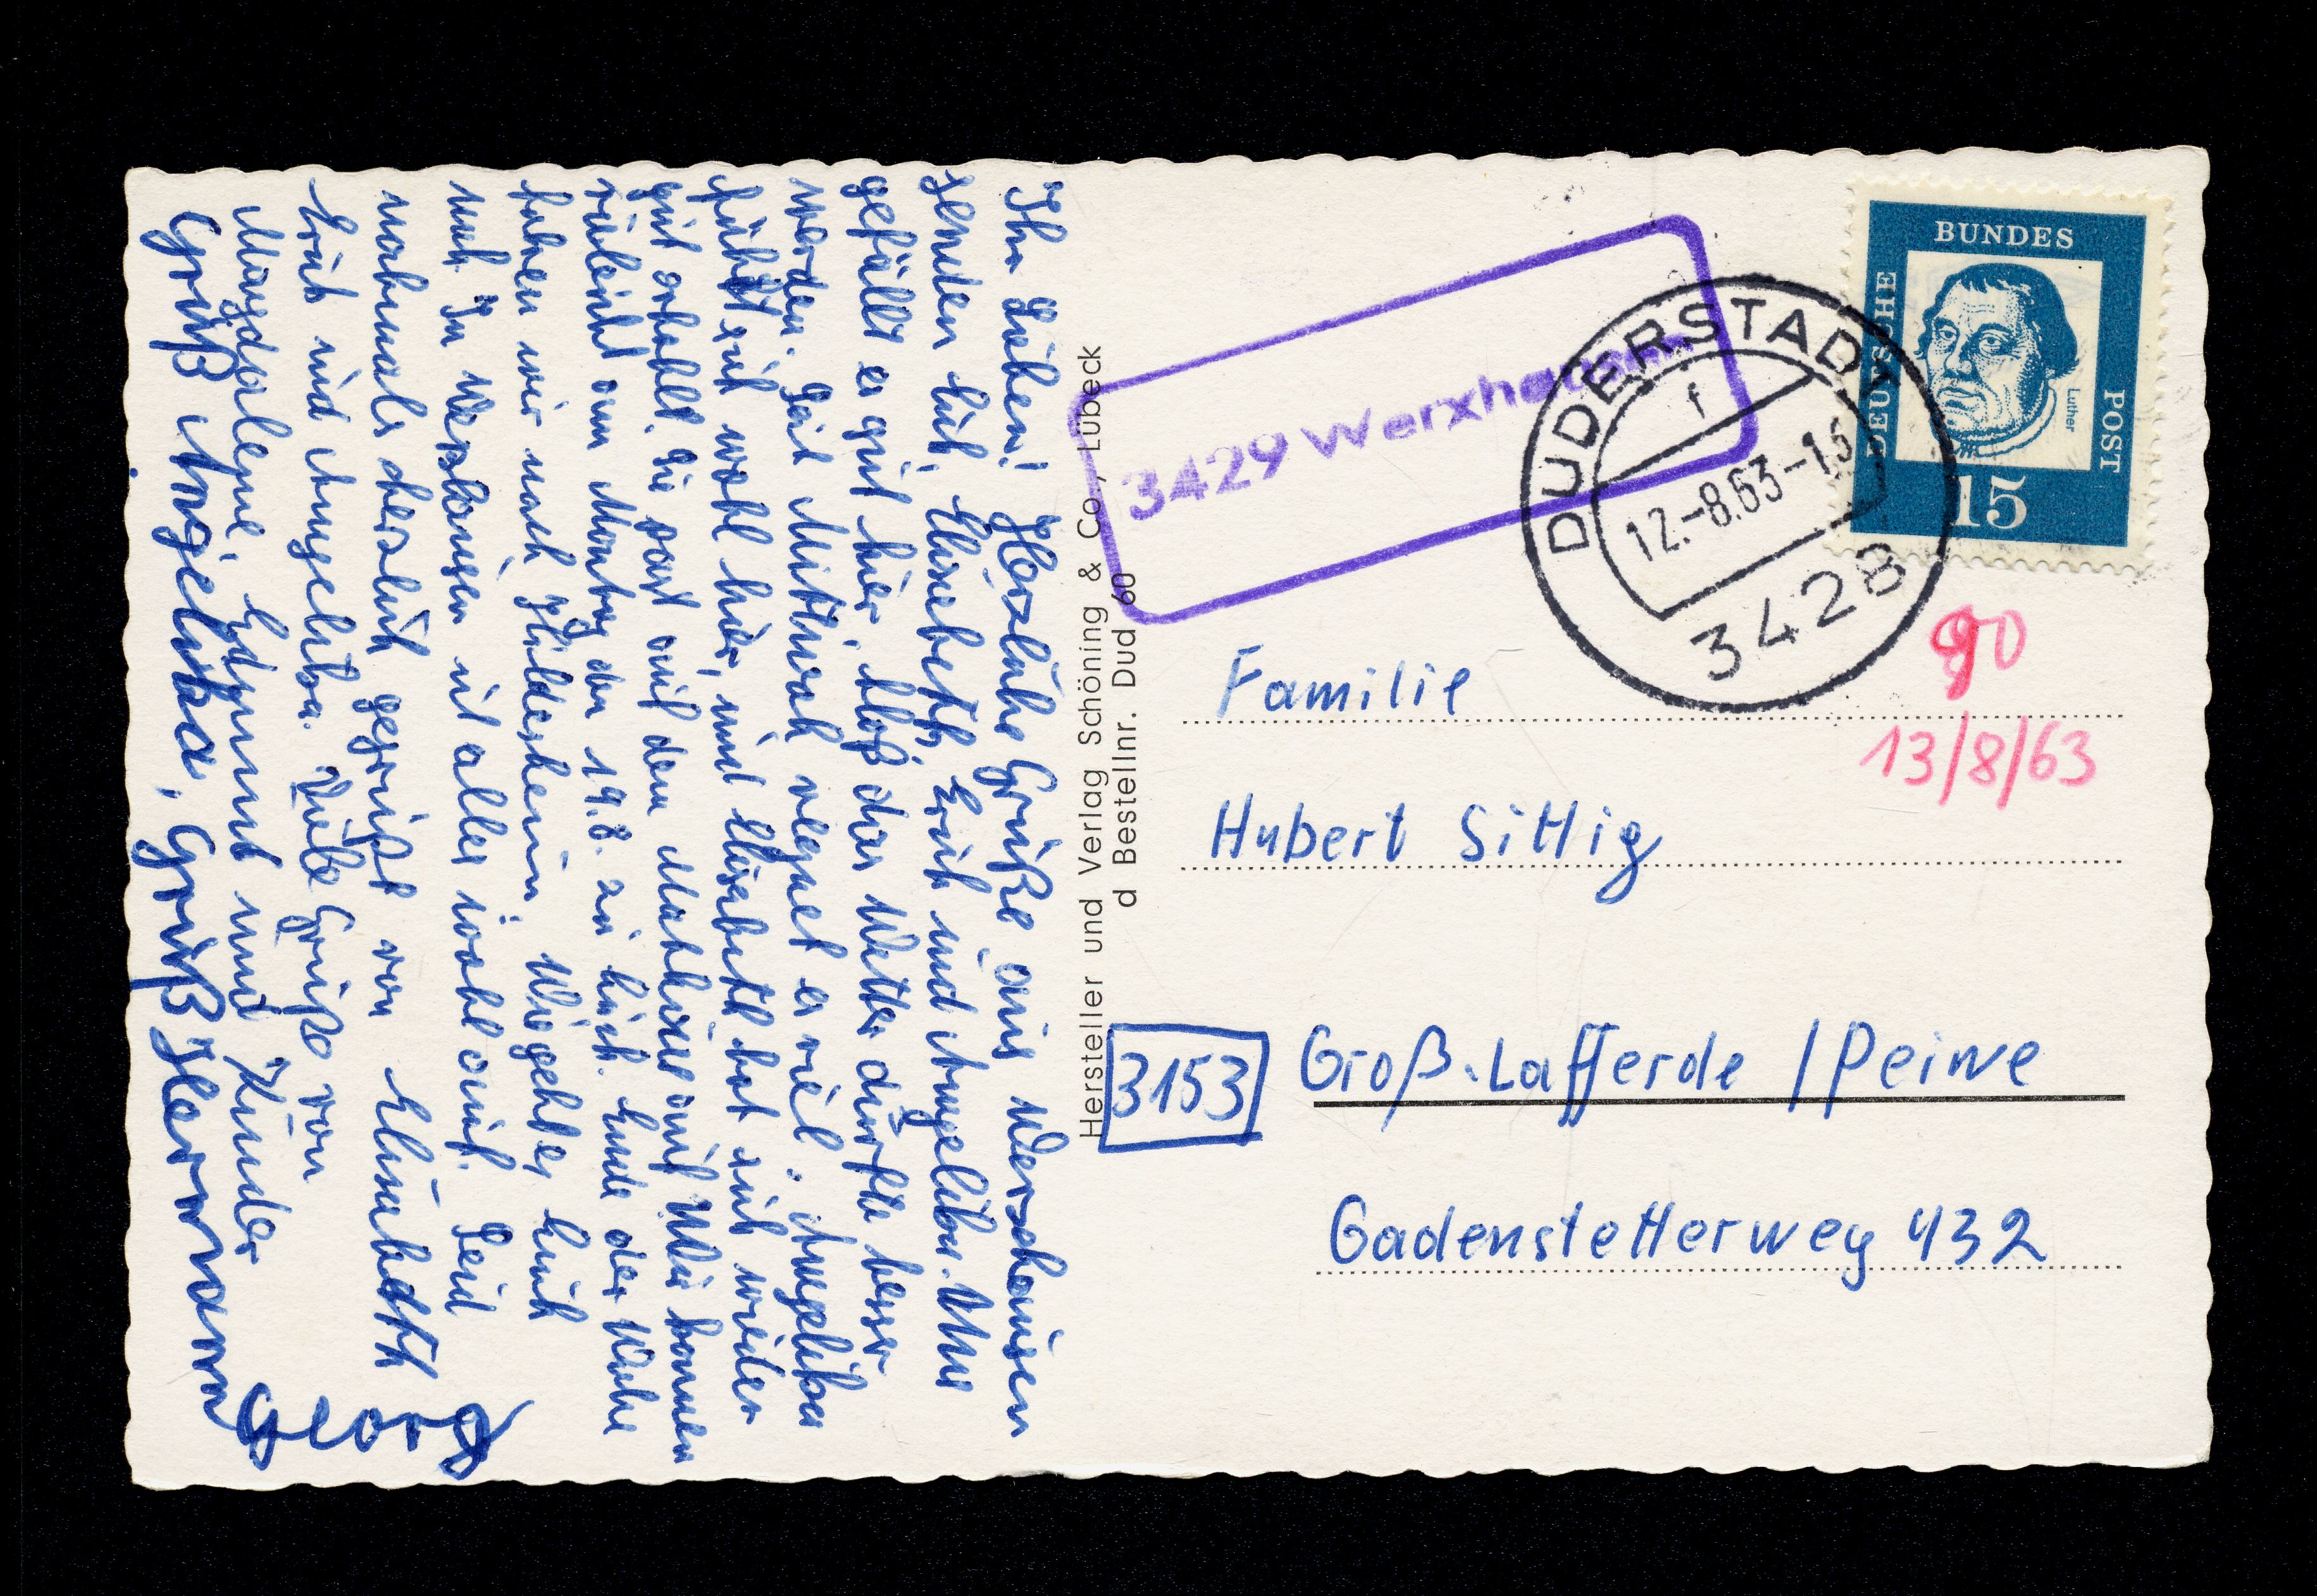 Ihr Lieben! Herzliche Grüße aus Werxhausen
senden Euch, Elisabeth, Erich und Angelika. Uns
gefällt es gut hier, bloß das Wetter dürfte besser
werden. Seit Mittwoch regnet es viel. Angelika
fühlt sich wohl hier, und Elisabeth hat sich wieder
gut erholt. Sie sagt auf den Mathias auf. Wir kommen
vieleicht am Montag den 19.8. zu Euch. Ende der Woche
fahren wir nach Hildesheim. Wie geht es Euch
noch. In Werxhausen ist alles wohl auf. Seid
nochmals herzlich gegrüßt von Elisabeth
Erich und Angelika. Viele Grüße von
Magdalene, Edmund und Kinder
Gruß Angelika, Gruß Hermann
Georg
Hersteller und Verlag Schöning & Co., Lübeck
d Bestellnr. Dud 60
3429 Werxhausen
DUDERSTADT
f
12.-8.63-15
3428
DEUTSCHE
BUNDES
POST
Luther
15
90
13/8/63
Familie
Hubert Sittig
3153 Groß-Lafferde / Peine
Gadenstetterweg 432